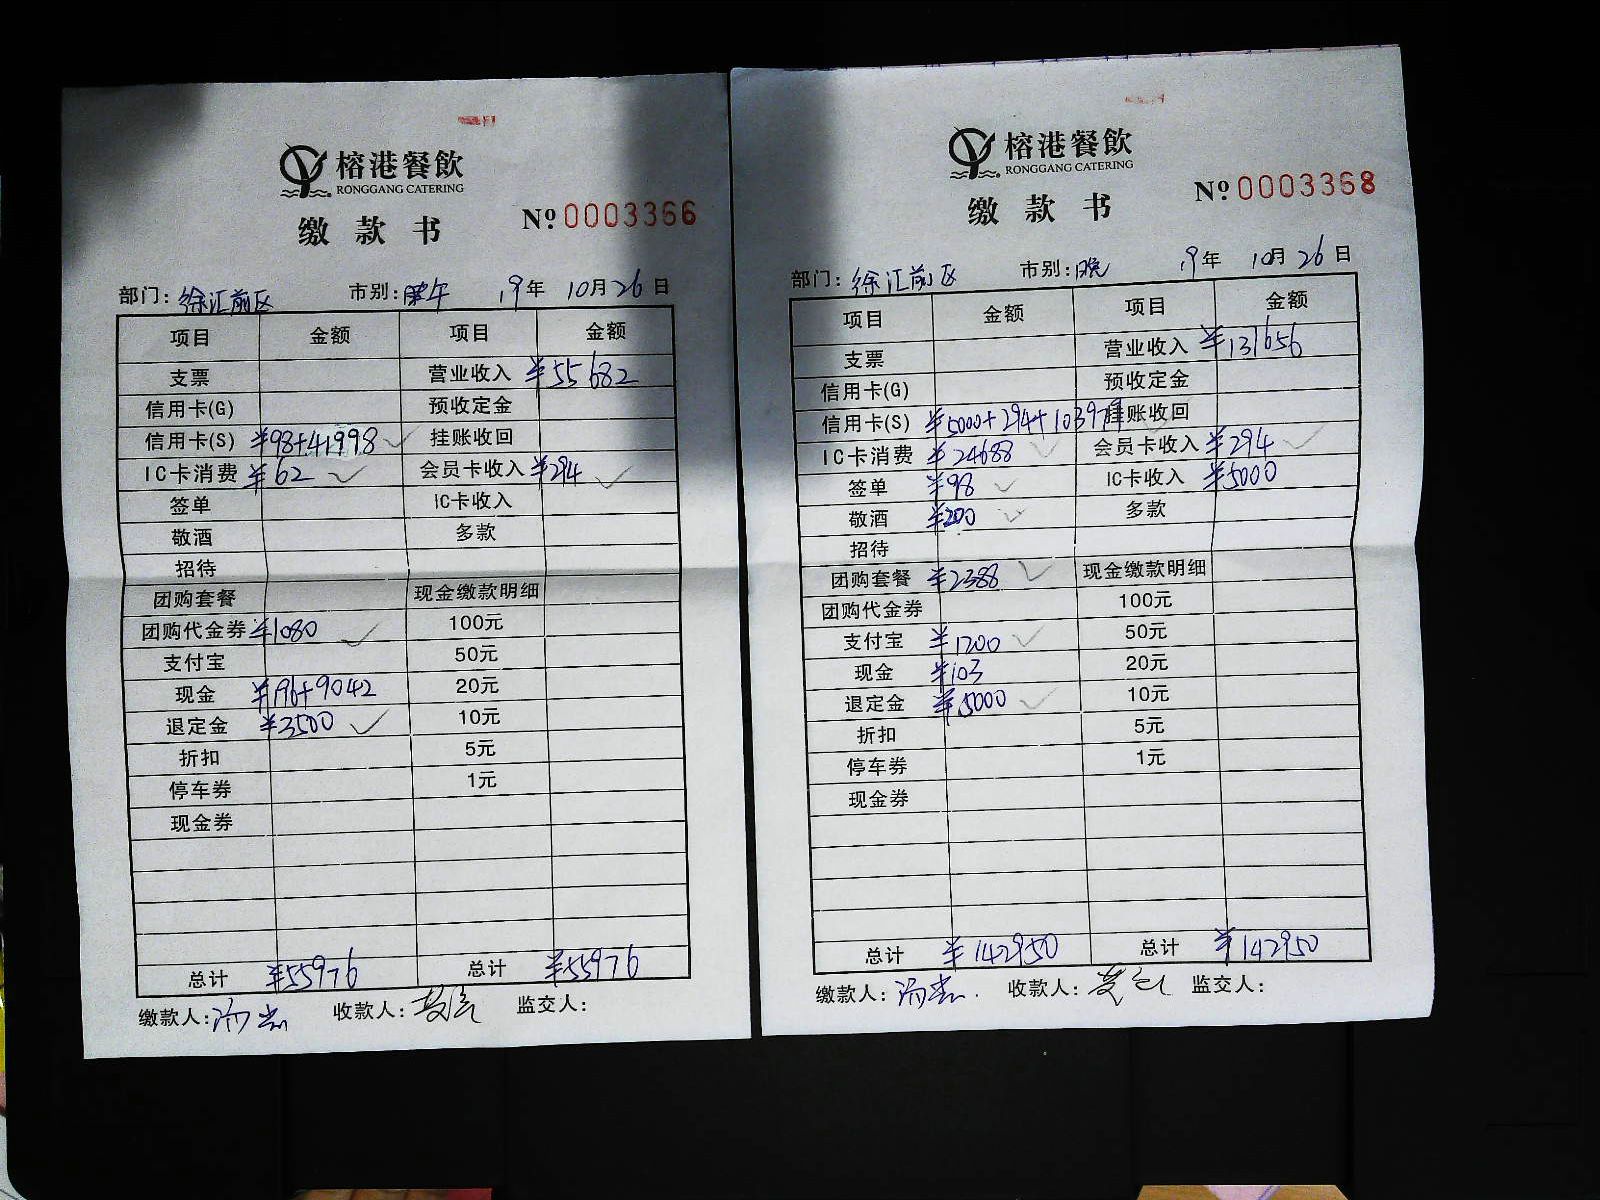 榕港餐飲
RONGGANG CATERING
缴款书
Nº 0003366
部门: 徐汇前区 市别: 午 19年 10月 26日
项目 金额 项目 金额
支票 营业收入 ¥55682
信用卡(G) 预收定金
信用卡(S) ¥98+41998 挂账收回
IC卡消费 ¥62 会员卡收入 ¥294
签单 IC卡收入
敬酒 多款
招待
团购套餐 现金缴款明细
团购代金券 ¥1080 100元
支付宝 50元
现金 ¥196+9042 20元
退定金 ¥3500 10元
折扣 5元
停车券 1元
现金券
总计 ¥55976 总计 ¥55976
缴款人: 收款人: 监交人:
榕港餐飲
RONGGANG CATERING
缴款书
Nº 0003368
部门: 徐汇前区 市别: 晚 19年 10月 26日
项目 金额 项目 金额
支票 营业收入 ¥131656
信用卡(G) 预收定金
信用卡(S) ¥5000+294+103979 挂账收回
IC卡消费 ¥24688 会员卡收入 ¥294
签单 ¥98 IC卡收入 ¥5000
敬酒 ¥200 多款
招待
团购套餐 ¥2388 现金缴款明细
团购代金券 100元
支付宝 ¥1200 50元
现金 ¥103 20元
退定金 ¥5000 10元
折扣 5元
停车券 1元
现金券
总计 ¥142950 总计 ¥142950
缴款人: 收款人: 监交人: